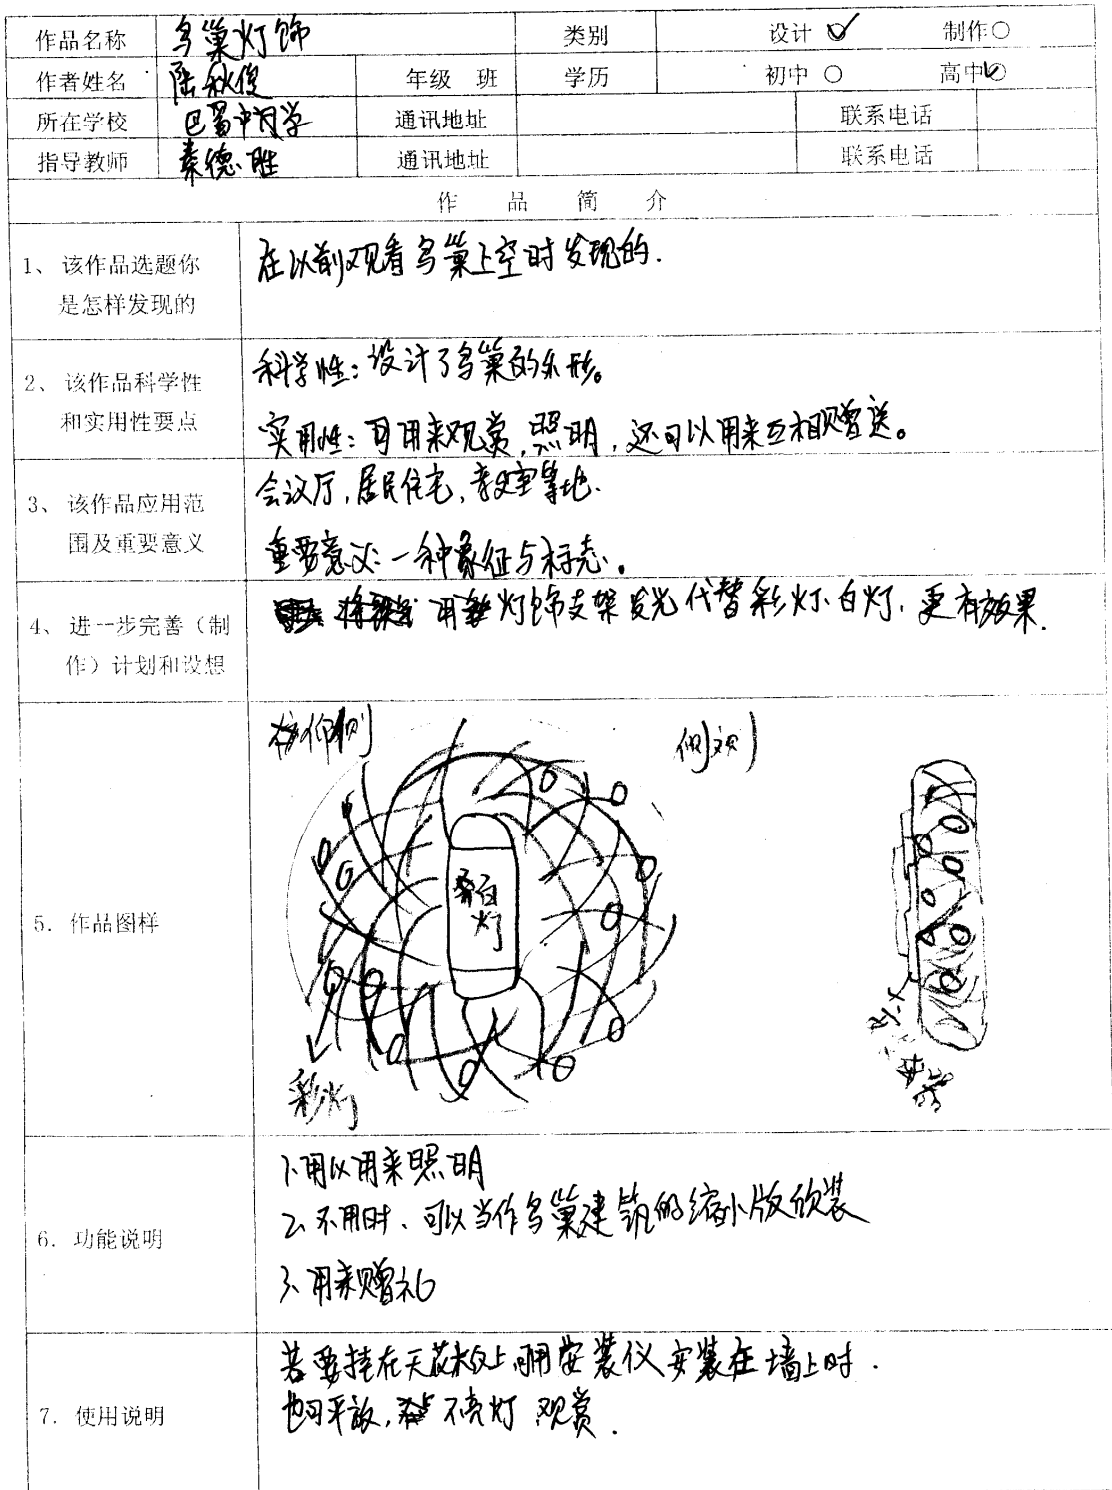 作品名称 鸟巢灯饰 类别 设计 ○ 制作○
作者姓名 陆秋俊 年级 班 学历 初中 ○ 高中○
所在学校 巴蜀中学 通讯地址 联系电话
指导教师 秦德胜 通讯地址 联系电话
作 品 简 介
1、 该作品选题你
是怎样发现的
在以前观看鸟巢上空时发现的.
2、 该作品科学性
和实用性要点
科学性：设计了鸟巢的外形。
实用性：可用来观赏,照明，还可以用来互相赠送。
3、 该作品应用范
围及重要意义
会议厅，居民住宅，教室等地.
重要意义：一种象征与标志。
4、 进一步完善（制
作）计划和设想
用 灯饰支架发光代替彩灯、白灯，更有效果.
5. 作品图样
仰侧
侧观
白
灯
彩灯
6. 功能说明
1、用以用来照明
2、不用时、可以当作鸟巢建筑的缩小版欣装
3、用来赠礼
7. 使用说明
若要挂在天花板上 用安装仪安装在墙上时.
也可平放， 不亮灯 观赏.